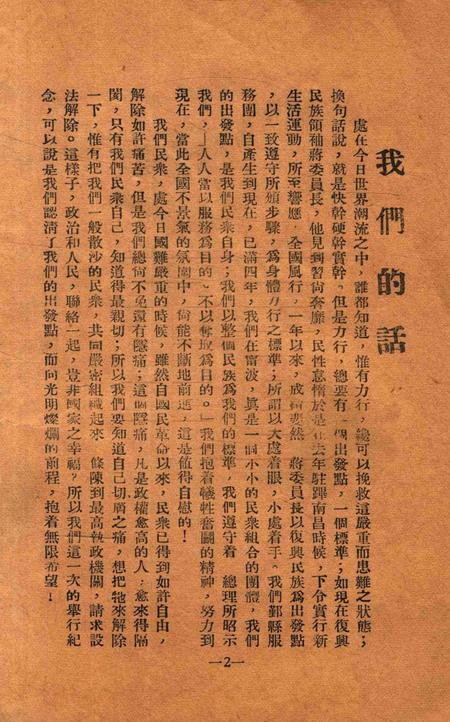 我們的話
處在今日世界潮流之中，誰都知道，惟有力行，纔可以挽救這嚴重而患難之狀態；
換句話說，就是快幹硬幹實幹。但是力行，總要有一個出發點，一個標準；如現在復興
民族領袖蔣委員長，他見到習尚奢靡，民性怠惰於是在去年駐蹕南昌時候，下令實行新
生活運動，所至響應，全國風行，一年以來，成績斐然 蔣委員長以復興民族為出發點
，以一致遵守所頒步驟，為身體力行之標準；所謂以大處着眼，小處着手。我們鄞縣服
務團，自產生到現在，已滿四年，我們在甯波，眞是一個小小的民衆組合的團體，我們
的出發點，是我們民衆自身；我們以整個民族為我們的標準，我們遵守着 總理所昭示
我們，「人人當以服務為目的，不以奪取為目的。」我們抱着犧牲奮鬭的精神，努力到
現在，當此全國不景氣的氛圍中，尙能不斷地前進，這是值得自慰的！
我們民衆，處今日國難嚴重的時候，雖然自國民革命以來，民衆已得到如許自由，
解除如許痛苦，但是我們總尙不免還有隱痛；這個隱痛，凡是政權愈高的人，愈來得隔
閡，只有我們民衆自己，知道得最親切；所以我們要知道自己切膚之痛，想把牠來解除
一下，惟有把我們一般散沙的民衆，共同嚴密組織起來 條陳到最高執政機關，請求設
法解除。這樣子，政治和人民，聯絡一起，豈非國家之幸福？所以我們這一次的舉行紀
念，可以說是我們認淸了我們的出發點，而向光明燦爛的前程，抱着無限希望！
—2—